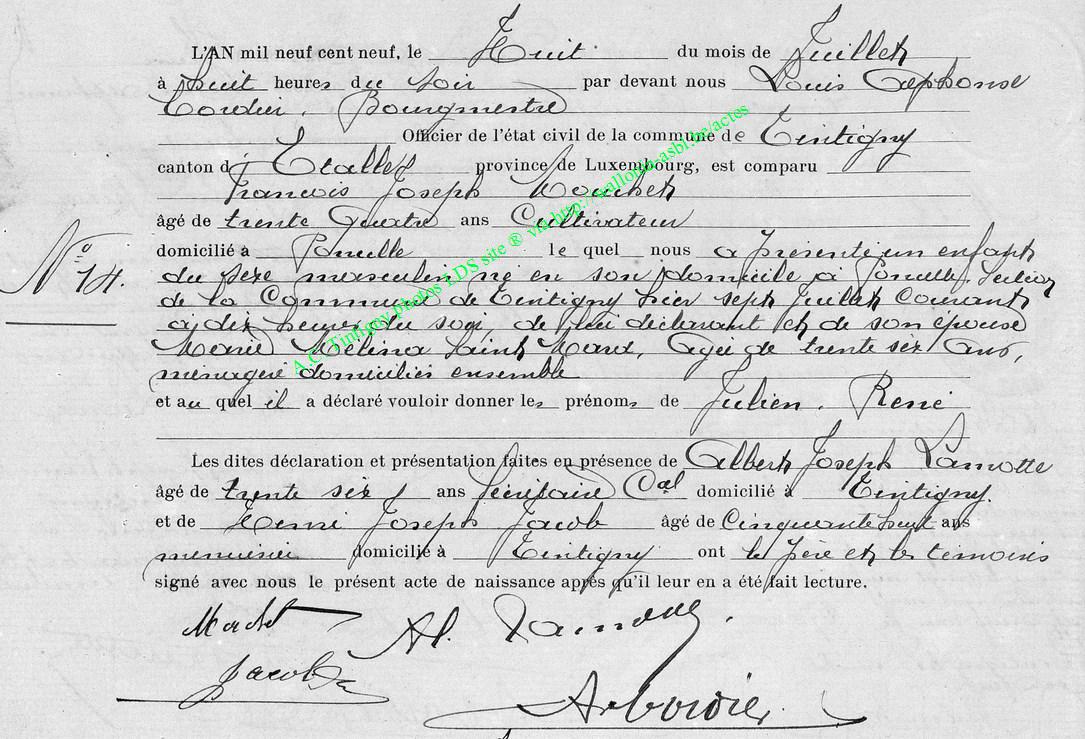 L'AN mil neuf cent neuf, le Huit du mois de Juillet
à huit heures du soir par devant nous Louis Alphonse
Cordier, Bourgmestre
Officier de l'état civil de la commune de Tintigny
canton d' Etalle province de Luxembourg, est comparu
Francois Joseph
âgé de trente Quatre ans Cultivateur
N° 14.
domicilié à Poncelle le quel nous a présenté un enfant
du sexe masculin né en son domicile à Poncelle, section
de la Commune de Tintigny hier sept Juillet courant
à dix heures du soir, de lui déclarant et de son épouse
Marie Mélina Saint Mard, agée de trente six ans,
ménagère domiciliés ensemble
et au quel il a déclaré vouloir donner les prénoms de Julien, René
Les dites déclaration et présentation faites en présence de Albert Joseph Lamotte
âgé de trente six ans secrétaire Cal domicilié à Tintigny.
et de Henri Joseph Jacob âgé de Cinquante huit ans
menuisier domicilié à Tintigny ont le père et les témoins
signé avec nous le présent acte de naissance après qu'il leur en a été fait lecture.
A. Lamotte
Jacob
A. Cordier
A.C. Tintigny photos LDS site ® via http://wallonia-asbl.be/actes